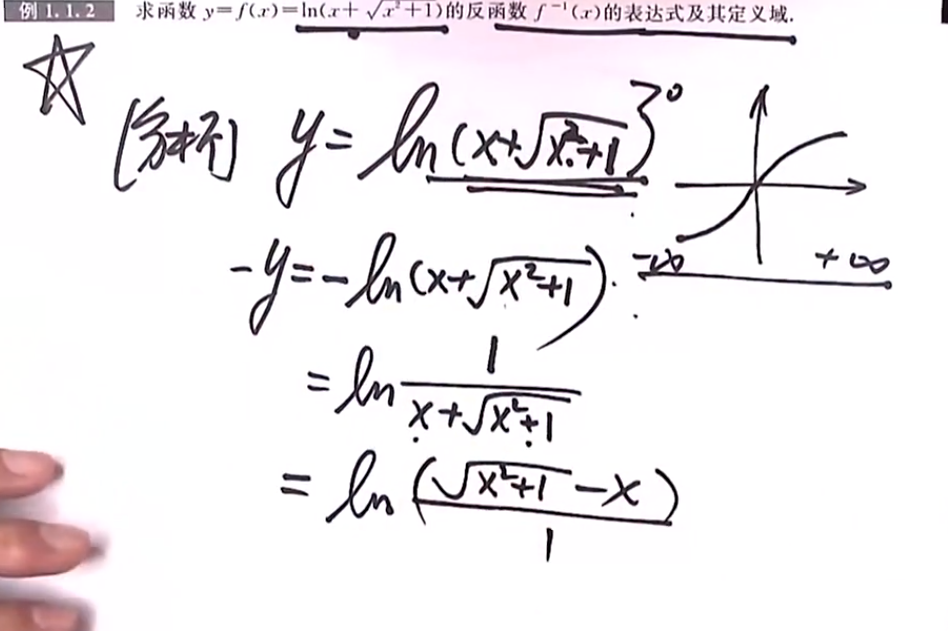 例 1.1.2 求函数 y=f(x)=ln(x+√x²+1)的反函数 f⁻¹(x)的表达式及其定义域.
[分析] y=ln(x+√x²+1) >0
-∞ +∞
-y=-ln(x+√x²+1).
=ln 1/(x+√x²+1)
=ln (√x²+1-x)/1